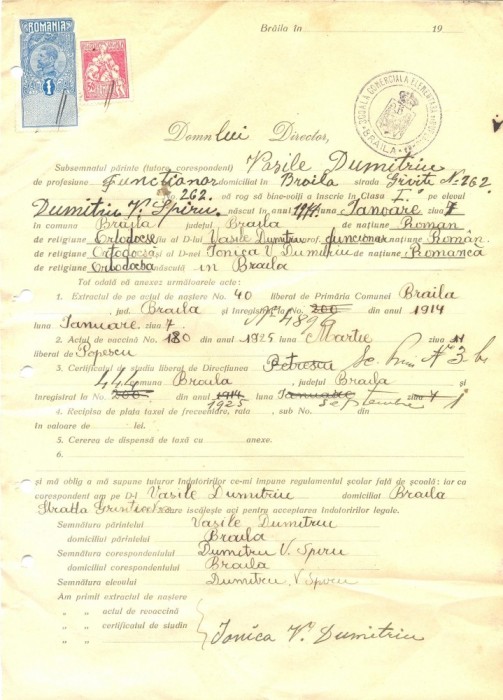 ROMANIA
1
Brăila în 19
ȘCOALA COMERCIALA ELEMENTARA
BRAILA
Domnului Director,
Subsemnatul părinte (tutore corespondent) Vasile Dumitriu
de profesiune functionar domiciliat în Braila strada Grivita No 262
No. 262. să rog să bine-voiți a înscrie în Clasa I-a pe elevul
Dumitriu V. Spiru. născut în anul 1914 luna Ianoare ziua 7
în comuna Braila județul Braila de națiune Roman
de religiune Ortodocse fiu al D-lui Vasile Dumitriu prof. funcționar de națiune Român.
de religiune Ortodocsă și al D-nei Ionica V. Dumitriu de națiune Romanca
de religiune Ortodocsa născută în Braila
Tot odată vă anexez următoarele acte:
1. Extractul de pe actul de naștere No. 40 liberat de Primăria Comunei Braila
jud. Braila și înregistrat la No. 200 din anul 1914
luna Ianuare ziua 7. No 4896
2. Actul de vaccină No. 180 din 1925 luna Martie ziua 11
liberat de Popescu
3. Certificatul de studiu liberat de Direcțiunea Petrescu Sc. Prim. No 3 b
comuna Braila, județul Braila și
446
înregistrat la No. 200 din anul 1914 luna Ianuare ziua 7
1925 Septembre 1
4. Recipisa de plata taxul de frecvenire, rata, sub No. din
în valoare de lei.
5. Cererea de dispensă de taxă cu anexe.
6.
și mă oblig a mă supune tuturor îndatoririlor ce-mi impune regulamentul școlar față de școală; iar ca
corespondent am pe D-l Vasile Dumitriu domiciliat Braila
Strada care iscălește aci pentru acceptarea îndatoririlor legale.
Semnătura părintelui Vasile Dumitriu
domiciliul părintelui Braila
Semnătura corespondentului Dumitru V. Spiru
domiciliul corespondentului Braila
Semnătura elevului Dumitru V Spiru
Am primit extractul de naștere
„ „ actul de revaccină
„ „ certificatul de studiu
„ „
Ionica V. Dumitriu